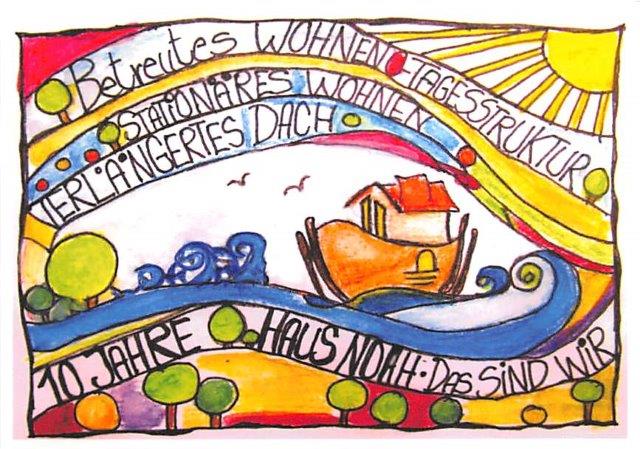 Betreutes WOHNEN • TAGESSTRUKTUR
STATIONÄRES WOHNEN
VERLÄNGERTES DACH
10 JAHRE HAUS NOAH • DAS SIND WIR